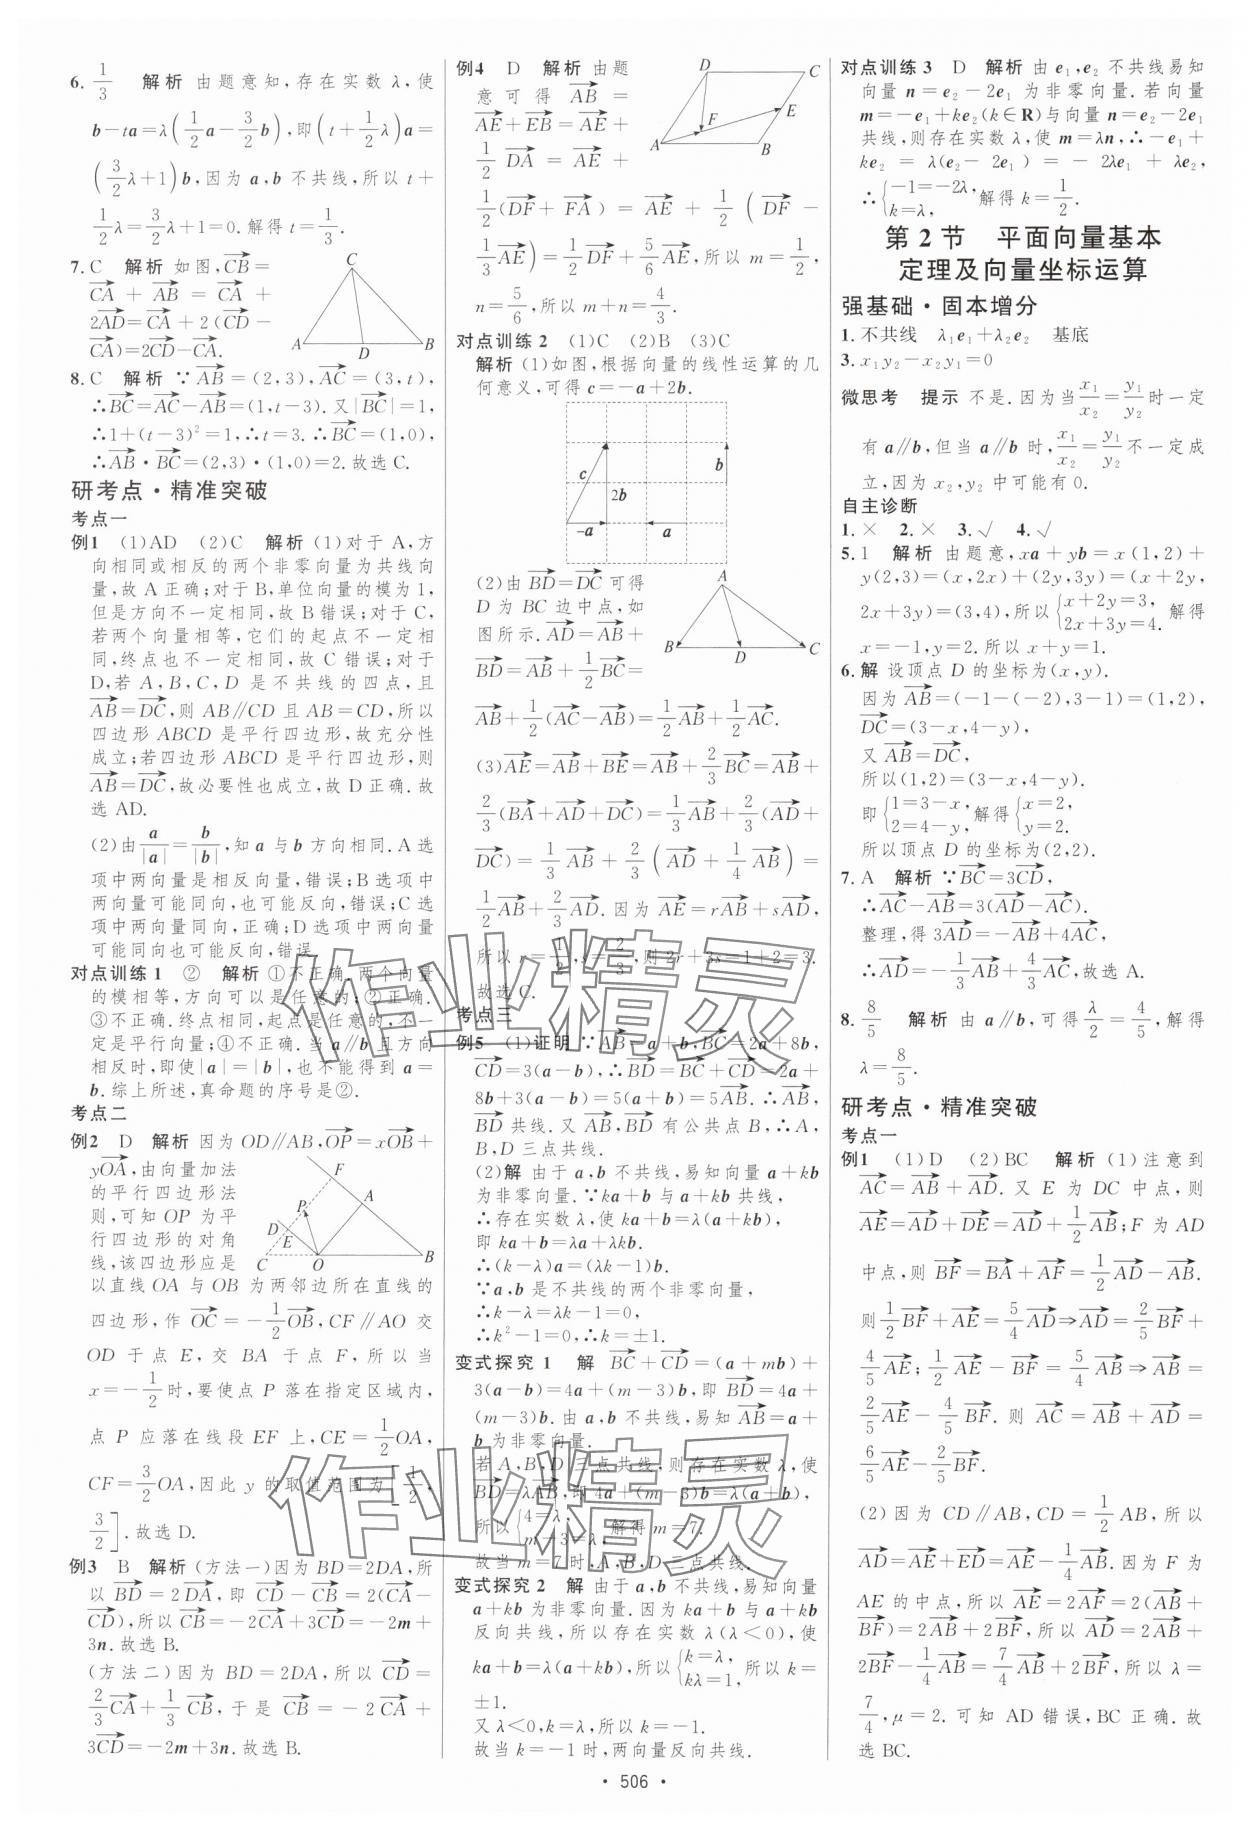 6. 1/3 解析 由题意知,存在实数λ,使
b-ta=λ(1/2a-3/2b),即(t+1/2λ)a=
(3/2λ+1)b,因为a,b不共线,所以t+
1/2λ=3/2λ+1=0.解得t=1/3.
7. C 解析 如图,CB→=
CA→+AB→=CA→+
2AD→=CA→+2(CD→-
CA→)=2CD→-CA→.
C
A D B
8. C 解析 ∵AB→=(2,3),AC→=(3,t),
∴BC→=AC→-AB→=(1,t-3).又|BC→|=1,
∴1+(t-3)²=1,∴t=3.∴BC→=(1,0),
∴AB→·BC→=(2,3)·(1,0)=2.故选C.
研考点·精准突破
考点一
例1 (1)AD (2)C 解析 (1)对于A,方
向相同或相反的两个非零向量为共线向
量,故A正确;对于B,单位向量的模为1,
但是方向不一定相同,故B错误;对于C,
若两个向量相等,它们的起点不一定相
同,终点也不一定相同,故C错误;对于
D,若A,B,C,D是不共线的四点,且
AB→=DC→,则AB∥CD且AB=CD,所以
四边形ABCD是平行四边形,故充分性
成立;若四边形ABCD是平行四边形,则
AB→=DC→,故必要性也成立,故D正确.故
选AD.
(2)由a/|a|=b/|b|,知a与b方向相同.A选
项中两向量是相反向量,错误;B选项中
两向量可能同向,也可能反向,错误;C选
项中两向量同向,正确;D选项中两向量
可能同向也可能反向,错误.
对点训练1 ② 解析 ①不正确.两个向量
的模相等,方向可以是任意的;②正确.
③不正确.终点相同,起点是任意的,不一
定是平行向量;④不正确.当a∥b且方向
相反时,即使|a|=|b|,也不能得到a=
b.综上所述,真命题的序号是②.
考点二
例2 D 解析 因为OD∥AB,OP→=xOB→+
yOA→,由向量加法
的平行四边形法
则,可知OP为平
行四边形的对角
线,该四边形应是
F
P A
D E
C O B
以直线OA与OB为两邻边所在直线的
四边形,作OC→=-1/2OB→,CF∥AO交
OD于点E,交BA于点F,所以当
x=-1/2时,要使点P落在指定区域内,
点P应落在线段EF上,CE=1/2OA,
CF=3/2OA,因此y的取值范围为[1/2,
3/2].故选D.
例3 B 解析 (方法一)因为BD=2DA,所
以BD→=2DA→,即CD→-CB→=2(CA→-
CD→),所以CB→=-2CA→+3CD→=-2m+
3n.故选B.
(方法二)因为BD=2DA,所以CD→=
2/3CA→+1/3CB→,于是CB→=-2CA→+
3CD→=-2m+3n.故选B.
例4 D 解析 由题
意可得AB→=
AE→+EB→=AE→+
1/2DA→=AE→+
D C
E
F
A B
1/2(DF→+FA→)=AE→+1/2(DF→-
1/3AE→)=1/2DF→+5/6AE→,所以m=1/2,
n=5/6,所以m+n=4/3.
对点训练2 (1)C (2)B (3)C
解析 (1)如图,根据向量的线性运算的几
何意义,可得c=-a+2b.
c b
2b
-a a
(2)由BD→=DC→可得
D为BC边中点,如
图所示.AD→=AB→+
BD→=AB→+1/2BC→=
A
B D C
AB→+1/2(AC→-AB→)=1/2AB→+1/2AC→.
(3)AE→=AB→+BE→=AB→+2/3BC→=AB→+
2/3(BA→+AD→+DC→)=1/3AB→+2/3(AD→+
DC→)=1/3AB→+2/3(AD→+1/4AB→)=
1/2AB→+2/3AD→.因为AE→=rAB→+sAD→,
所以r=1/2,s=2/3,则2r+3s=1+2=3.
故选C.
考点三
例5 (1)证明 ∵AB→=a+b,BC→=2a+8b,
CD→=3(a-b),∴BD→=BC→+CD→=2a+
8b+3(a-b)=5(a+b)=5AB→.∴AB→,
BD→共线.又AB→,BD→有公共点B,∴A,
B,D三点共线.
(2)解 由于a,b不共线,易知向量a+kb
为非零向量.∵ka+b与a+kb共线,
∴存在实数λ,使ka+b=λ(a+kb),
即ka+b=λa+λkb.
∴(k-λ)a=(λk-1)b.
∵a,b是不共线的两个非零向量,
∴k-λ=λk-1=0,
∴k²-1=0,∴k=±1.
变式探究1 解 BC→+CD→=(a+mb)+
3(a-b)=4a+(m-3)b,即BD→=4a+
(m-3)b.由a,b不共线,易知AB→=a+
b为非零向量.
若A,B,D三点共线,则存在实数λ,使
BD→=λAB→,即4a+(m-3)b=λ(a+b),
所以{4=λ, m-3=λ, 解得m=7.
故当m=7时,A,B,D三点共线.
变式探究2 解 由于a,b不共线,易知向量
a+kb为非零向量.因为ka+b与a+kb
反向共线,所以存在实数λ(λ<0),使
ka+b=λ(a+kb),所以{k=λ, kλ=1, 所以k=
±1.
又λ<0,k=λ,所以k=-1.
故当k=-1时,两向量反向共线.
对点训练3 D 解析 由e₁,e₂不共线易知
向量n=e₂-2e₁为非零向量.若向量
m=-e₁+ke₂(k∈R)与向量n=e₂-2e₁
共线,则存在实数λ,使m=λn,∴-e₁+
ke₂=λ(e₂-2e₁)=-2λe₁+λe₂,
∴{-1=-2λ, k=λ, 解得k=1/2.
第2节 平面向量基本
定理及向量坐标运算
强基础·固本增分
1. 不共线 λ₁e₁+λ₂e₂ 基底
3. x₁y₂-x₂y₁=0
微思考 提示 不是.因为当x₁/x₂=y₁/y₂时一定
有a∥b,但当a∥b时,x₁/x₂=y₁/y₂不一定成
立,因为x₂,y₂中可能有0.
自主诊断
1. × 2. × 3. √ 4. √
5. 1 解析 由题意,xa+yb=x(1,2)+
y(2,3)=(x,2x)+(2y,3y)=(x+2y,
2x+3y)=(3,4),所以{x+2y=3, 2x+3y=4. 解得
x=-1,y=2.所以x+y=1.
6. 解 设顶点D的坐标为(x,y).
因为AB→=(-1-(-2),3-1)=(1,2),
DC→=(3-x,4-y),
又AB→=DC→,
所以(1,2)=(3-x,4-y).
即{1=3-x, 2=4-y, 解得{x=2, y=2.
所以顶点D的坐标为(2,2).
7. A 解析 ∵BC→=3CD→,
∴AC→-AB→=3(AD→-AC→).
整理,得3AD→=-AB→+4AC→,
∴AD→=-1/3AB→+4/3AC→,故选A.
8. 8/5 解析 由a∥b,可得λ/2=4/5,解得
λ=8/5.
研考点·精准突破
考点一
例1 (1)D (2)BC 解析 (1)注意到
AC→=AB→+AD→.又E为DC中点,则
AE→=AD→+DE→=AD→+1/2AB→;F为AD
中点,则BF→=BA→+AF→=1/2AD→-AB→.
则1/2BF→+AE→=5/4AD→⇒AD→=2/5BF→+
4/5AE→;1/2AE→-BF→=5/4AB→⇒AB→=
2/5AE→-4/5BF→.则AC→=AB→+AD→=
6/5AE→-2/5BF→.
(2)因为CD∥AB,CD=1/2AB,所以
AD→=AE→+ED→=AE→-1/4AB→.因为F为
AE的中点,所以AE→=2AF→=2(AB→+
BF→)=2AB→+2BF→,所以AD→=2AB→+
2BF→-1/4AB→=7/4AB→+2BF→,所以λ=
7/4,μ=2.可知AD错误,BC正确.故
选BC.
· 506 ·
作业精灵
作业精灵